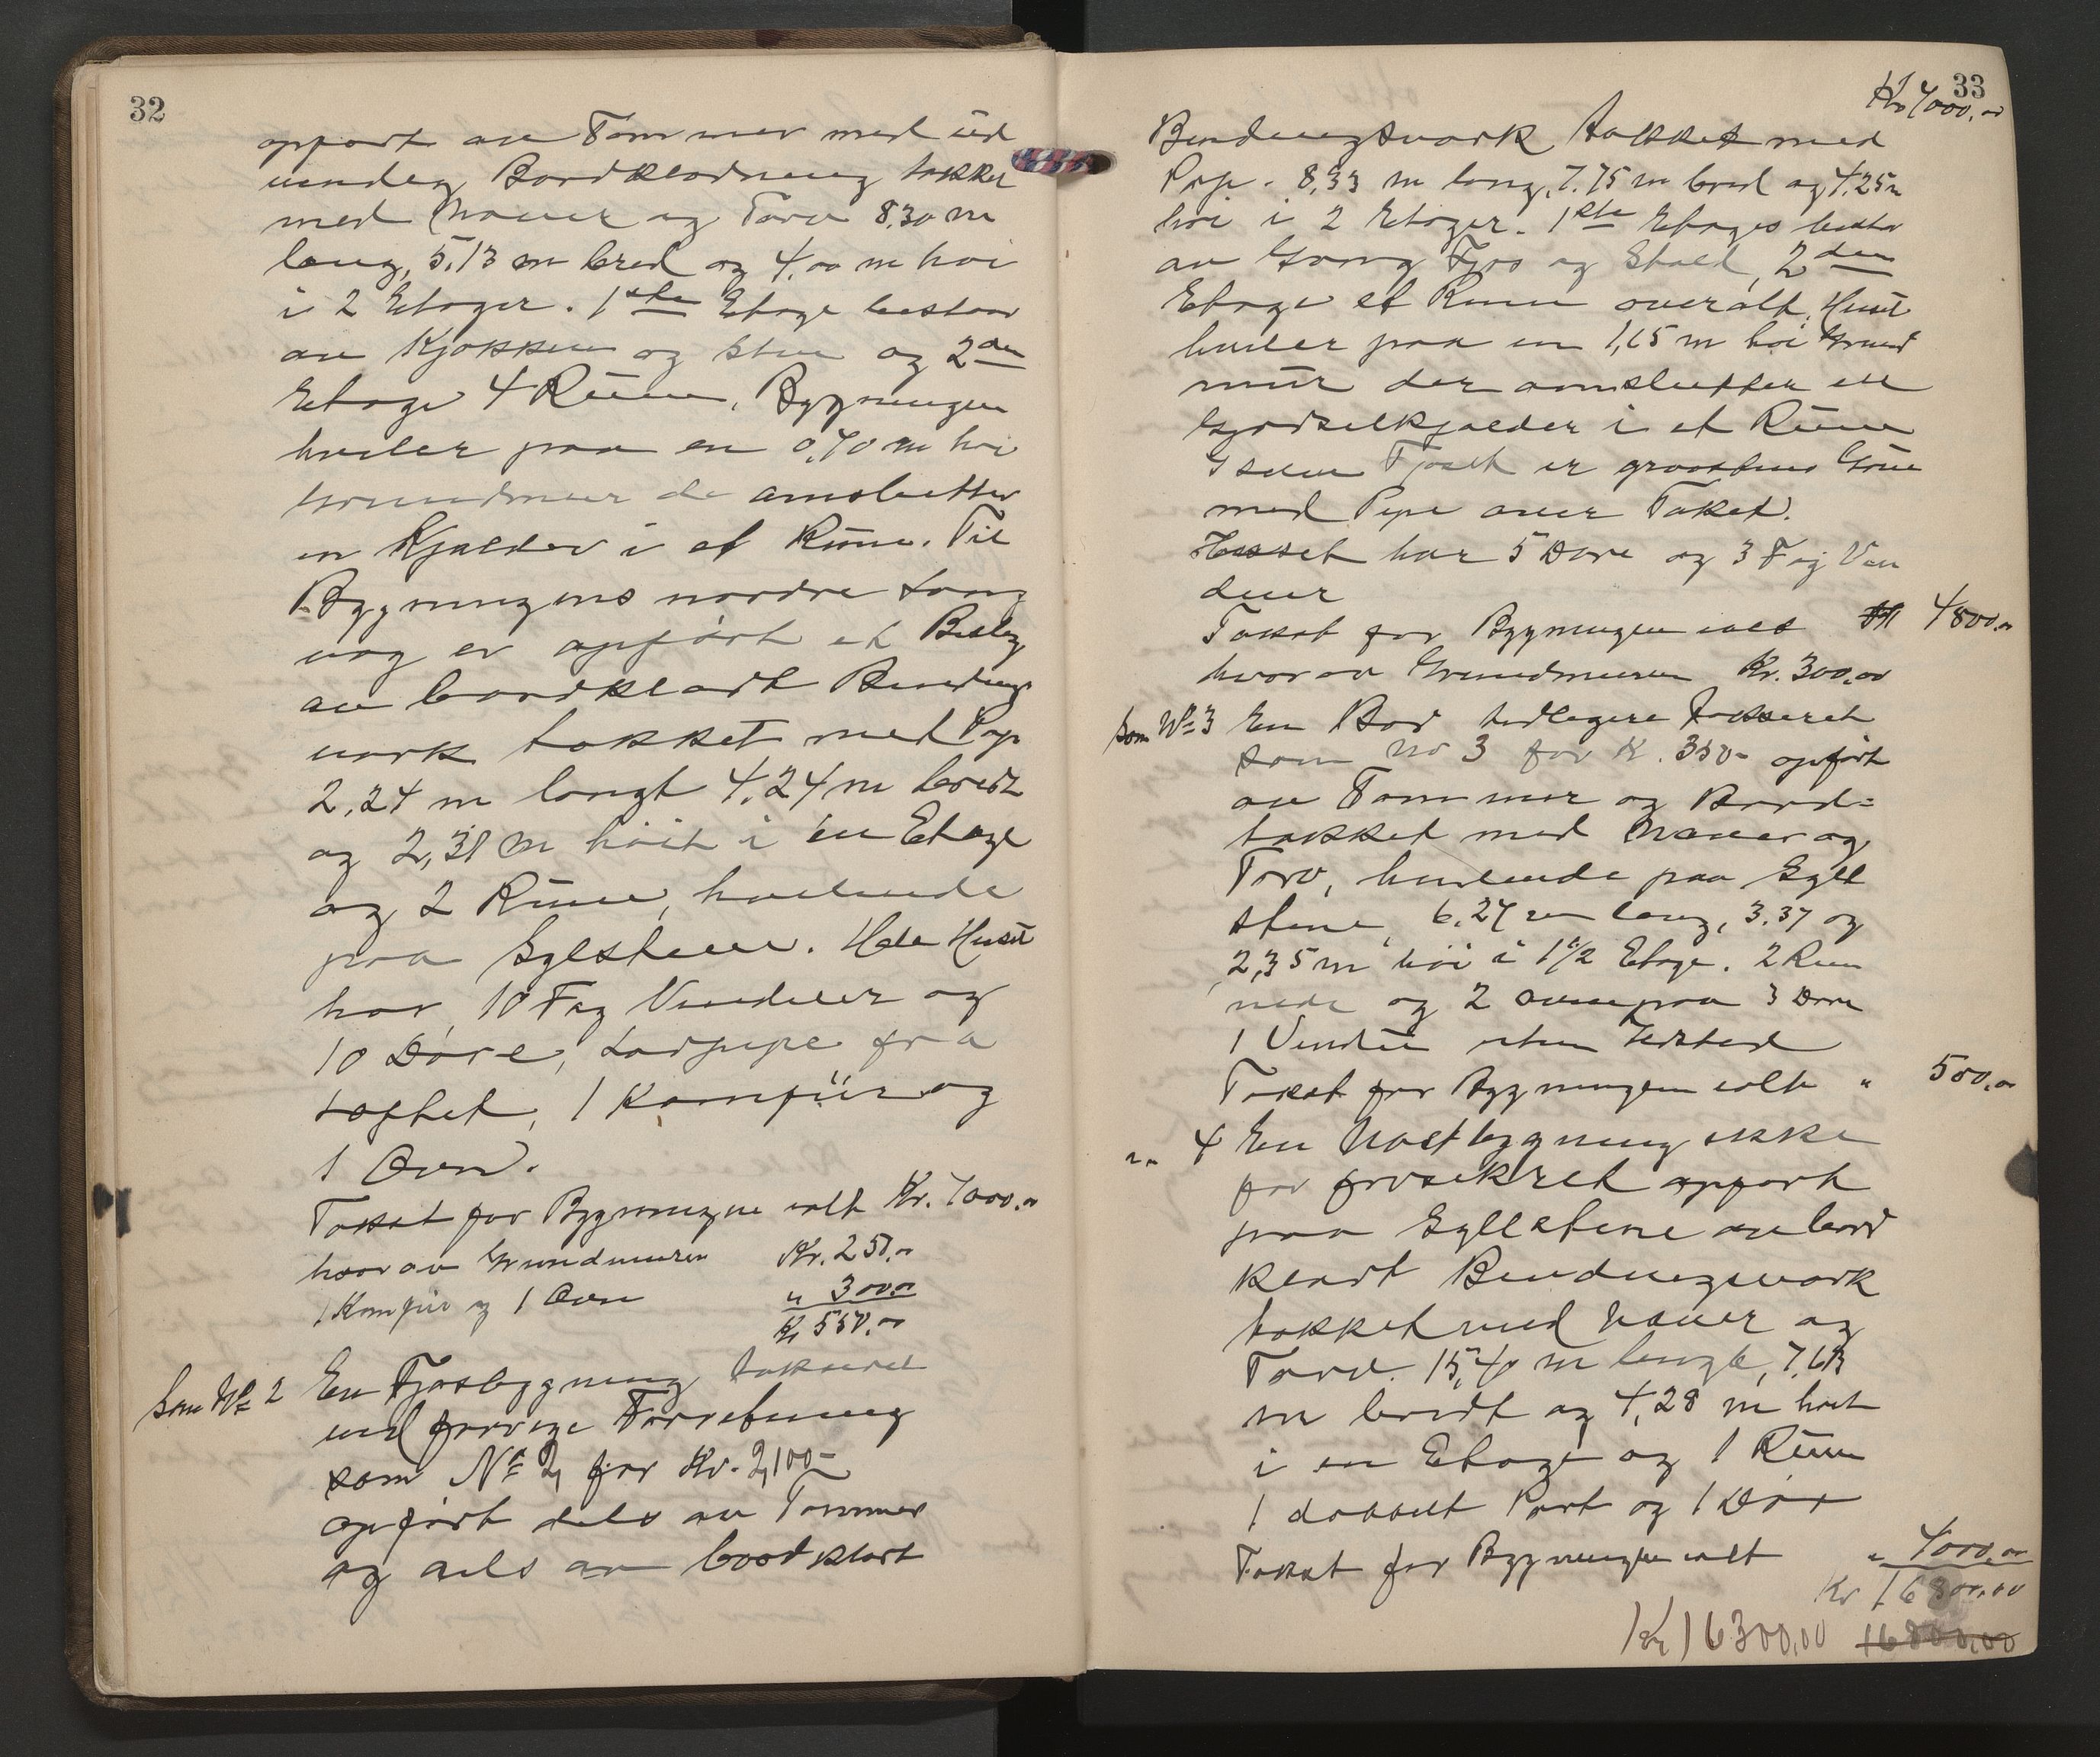 32
opført av Tømmer med ud
vendig Bordklædning tækket
med Næver og Torv 8,30 m
lang, 5,13 m bred og 4,00 m høi
i 2 Etager. 1ste Etage bestaar
av Kjøkken og Stue og 2den
Etage 4 Rum. Bygningen
hviler paa en 0,70 m høi
Grundmur de omslutter
en Kjælder i et Rum. Til
Bygningens nordre Lang
væg er opført et Bislag
av bordklædt Bindings
værk tækket med Pap
2,24 m langt 4,24 m bredt
og 2,38 m høit i en Etage
og 2 Rum, hvilende
paa Sylstene. Hele Huset
har 10 Fag Vinduer og
10 Døre, Ladpipe fra
Loftet, 1 Komfür og
1 Ovn.
Takst for Bygningen ialt Kr. 7000.00
hvorav Grundmuren Kr. 250.00
1 Komfür og 1 Ovn " 300.00
Kr 550.00
Som No 2 En Fjøsbygning takseret
ved forrige Forretning
som No 2, for Kr. 2,100-
opført dels av Tømmer
og dels av bordklædt
33
Kr 7000.00
Bindingsværk tækket med
Pap. 8,33 m lang, 7.75 m bred og 4,25 m
høi i 2 Etager. 1ste Etages bestaar
av Gang Fjøs og Stald, 2den
Etage et Rum overalt. Huset
hviler paa en 1,65 m høi Grund
mur der omslutter en
Gjødselkjælder i et Rum
I selve Fjøset er graastens Grue
med Pipe over Taket.
Huset har 5 Døre og 3 Fag Vin
duer
Takst for Bygningen ialt 4800.00
hvorav Grundmuren Kr. 300,00
Som No 3 En Bod tidligere takseret
som No 3 for K. 350- opført
av Tømmer og Bord-
tækket med Næver og
Torv, hvilende paa Syll
stene, 6,27 m lang, 3.37 og
2,35 m høi i 1 1/2 Etage. 2 Rum
nede og 2 ovenpaa 3 Døre
1 Vindu uten Ildsted
Takst for Bygningen ialt " 500.00
" 4 En Høstbygning ikke
før forsikret opført
paa Syllstene av bord
klædt Bindingsværk
tækket med Næver og
Torv. 15,40 m langt, 7,63
m bredt og 4,28 m høit
i en Etage og 1 Rum
1 dobbelt Port og 1 Dør
Takst for Bygningen ialt " 4000.00
Kr 16300,00
Kr 16300,00 16800,00